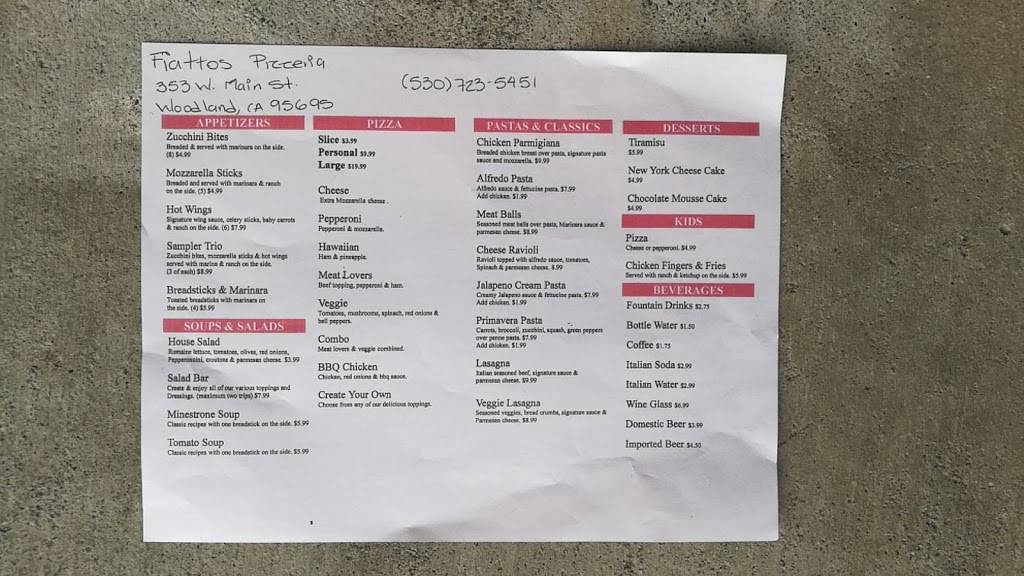 Fiattos Pizzeria
353 W. Main St.
(530) 723-5451
Woodland, CA 95695
APPETIZERS
Zucchini Bites
Breaded & served with marinara on the side.
(8) $4.99
Mozzarella Sticks
Breaded and served with marinara & ranch
on the side. (5) $4.99
Hot Wings
Signature wing sauce, celery sticks, baby carrots
& ranch on the side. (6) $7.99
Sampler Trio
Zucchini bites, mozzarella sticks & hot wings
served with marina & ranch on the side.
(3 of each) $8.99
Breadsticks & Marinara
Toasted breadsticks with marinara on
the side. (4) $5.99
SOUPS & SALADS
House Salad
Romaine lettuce, tomatoes, olives, red onions,
Pepperoncini, croutons & parmesan cheese. $3.99
Salad Bar
Create & enjoy all of our various toppings and
Dressings. (maximum two trips) $7.99
Minestrone Soup
Classic recipes with one breadstick on the side. $5.99
Tomato Soup
Classic recipes with one breadstick on the side. $5.99
PIZZA
Slice $3.99
Personal $9.99
Large $19.99
Cheese
Extra Mozzarella cheese.
Pepperoni
Pepperoni & mozzarella.
Hawaiian
Ham & pineapple.
Meat Lovers
Beef topping, pepperoni & ham.
Veggie
Tomatoes, mushrooms, spinach, red onions &
bell peppers.
Combo
Meat lovers & veggie combined.
BBQ Chicken
Chicken, red onions & bbq sauce.
Create Your Own
Choose from any of our delicious toppings.
PASTAS & CLASSICS
Chicken Parmigiana
Breaded chicken breast over pasta, signature pasta
sauce and mozzarella. $9.99
Alfredo Pasta
Alfredo sauce & fettucine pasta. $7.99
Add chicken. $1.99
Meat Balls
Seasoned meat balls over pasta, Marinara sauce &
parmesan cheese. $8.99
Cheese Ravioli
Ravioli topped with alfredo sauce, tomatoes,
Spinach & parmesan cheese. 8.99
Jalapeno Cream Pasta
Creamy Jalapeno sauce & fettucine pasta. $7.99
Add chicken. $1.99
Primavera Pasta
Carrots, broccoli, zucchini, squash, green peppers
over penne pasta. $7.99
Add chicken. $1.99
Lasagna
Italian seasoned beef, signature sauce &
parmesan cheese. $9.99
Veggie Lasagna
Seasoned veggies, bread crumbs, signature sauce &
Parmesan cheese. $8.99
DESSERTS
Tiramisu
$5.99
New York Cheese Cake
$4.99
Chocolate Mousse Cake
$4.99
KIDS
Pizza
Cheese or pepperoni. $4.99
Chicken Fingers & Fries
Served with ranch & ketchup on the side. $5.99
BEVERAGES
Fountain Drinks $2.75
Bottle Water $1.50
Coffee $1.75
Italian Soda $2.99
Italian Water $2.99
Wine Glass $6.99
Domestic Beer $3.99
Imported Beer $4.50